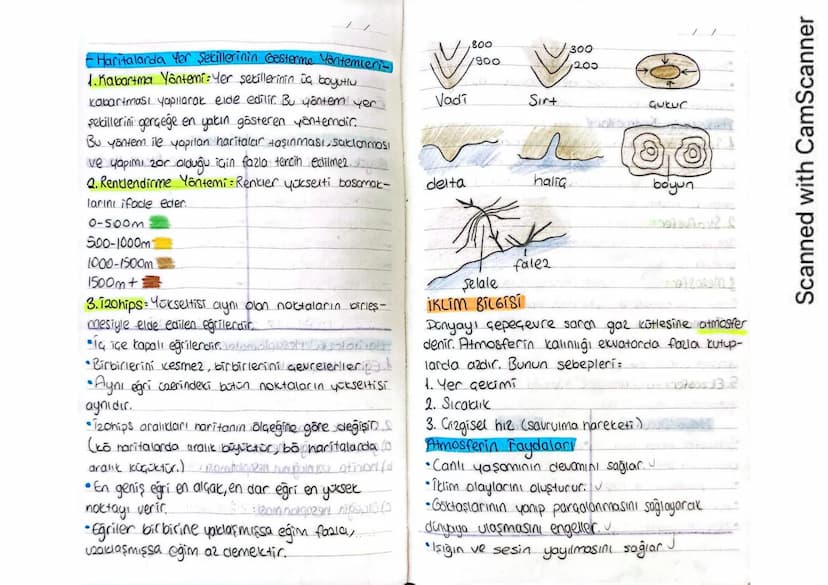 - Haritalarda Yer Şekillerinin Gösterme Yöntemleri -
1. Kabartma Yöntemi: Yer şekillerinin üç boyutlu
kabartması yapılarak elde edilir. Bu yöntem yer
şekillerini gerçeğe en yakın gösteren yöntemdir.
Bu yöntem ile yapılan haritalar taşınması, saklanması
ve yapımı zor olduğu için fazla tercih edilmez.
2. Renklendirme Yöntemi: Renkler yükselti basamak-
larını ifade eder.
0-500m
500-1000m
1000-1500m
1500m +
3. İzohips: Yükseltisi aynı olan noktaların birleş-
mesiyle elde edilen eğrilerdir.
• İç içe kapalı eğrilerdir.
• Birbirlerini kesmez, birbirlerini çevrelerler.
• Aynı eğri üzerindeki bütün noktaların yükseltisi
aynıdır.
• İzohips aralıkları haritanın ölçeğine göre değişir.
(kö haritalarda aralık büyüktür, bö haritalarda
aralık küçüktür.)
• En geniş eğri en alçak, en dar eğri en yüksek
noktayı verir.
• Eğriler birbirine yaklaşmışsa eğim fazla,
uzaklaşmışsa eğim az demektir.
800
900
300
200
Vadi
Sırt
Çukur
delta
haliç
boyun
falez
şelale
İKLİM BİLGİSİ
Dünyayı çepeçevre saran gaz kütlesine atmosfer
denir. Atmosferin kalınlığı ekvatorda fazla kutup-
larda azdır. Bunun sebepleri:
1. Yer çekimi
2. Sıcaklık
3. Çizgisel hız (savrulma hareketi)
Atmosferin Faydaları
• Canlı yaşamının devamını sağlar. ✓
• İklim olaylarını oluşturur. ✓
• Göktaşlarının yanıp parçalanmasını sağlayarak
dünyaya ulaşmasını engeller. ✓
• Işığın ve sesin yayılmasını sağlar ✓
Scanned with CamScanner